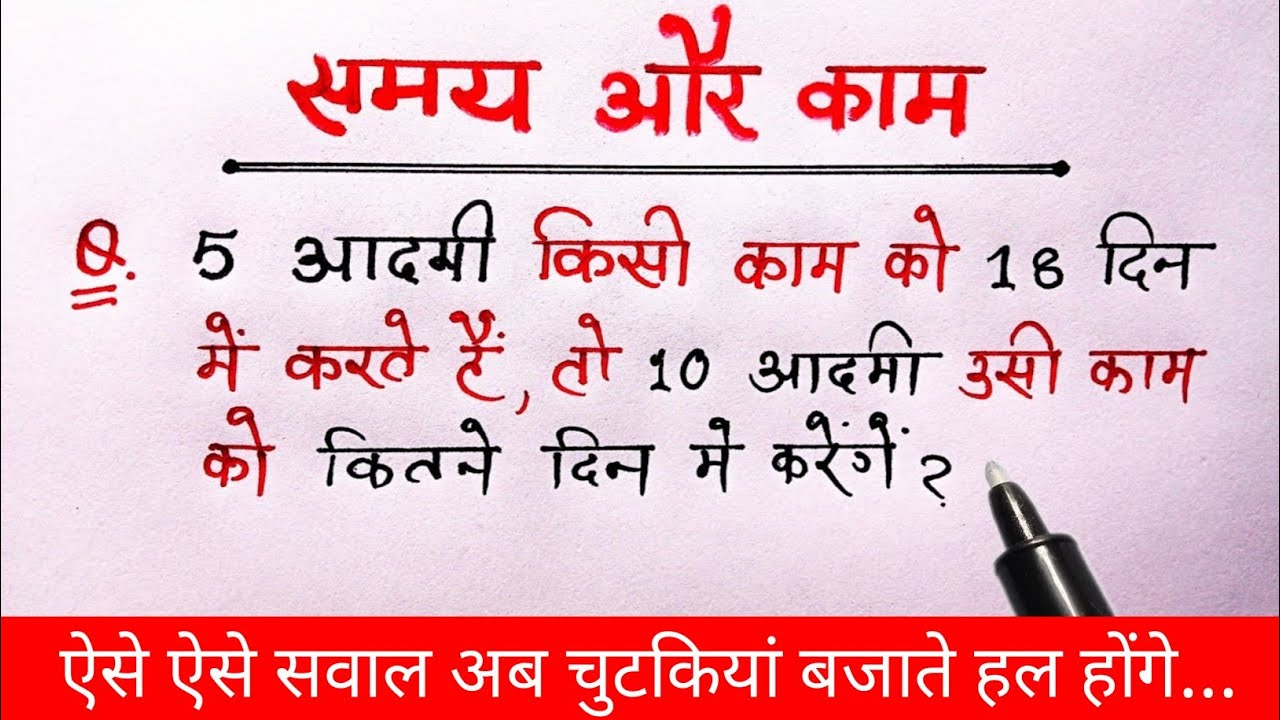 समय और काम
Q. 5 आदमी किसी काम को 18 दिन
में करते हैं, तो 10 आदमी उसी काम
को कितने दिन मे करेंगें ?
ऐसे ऐसे सवाल अब चुटकियां बजाते हल होंगे...